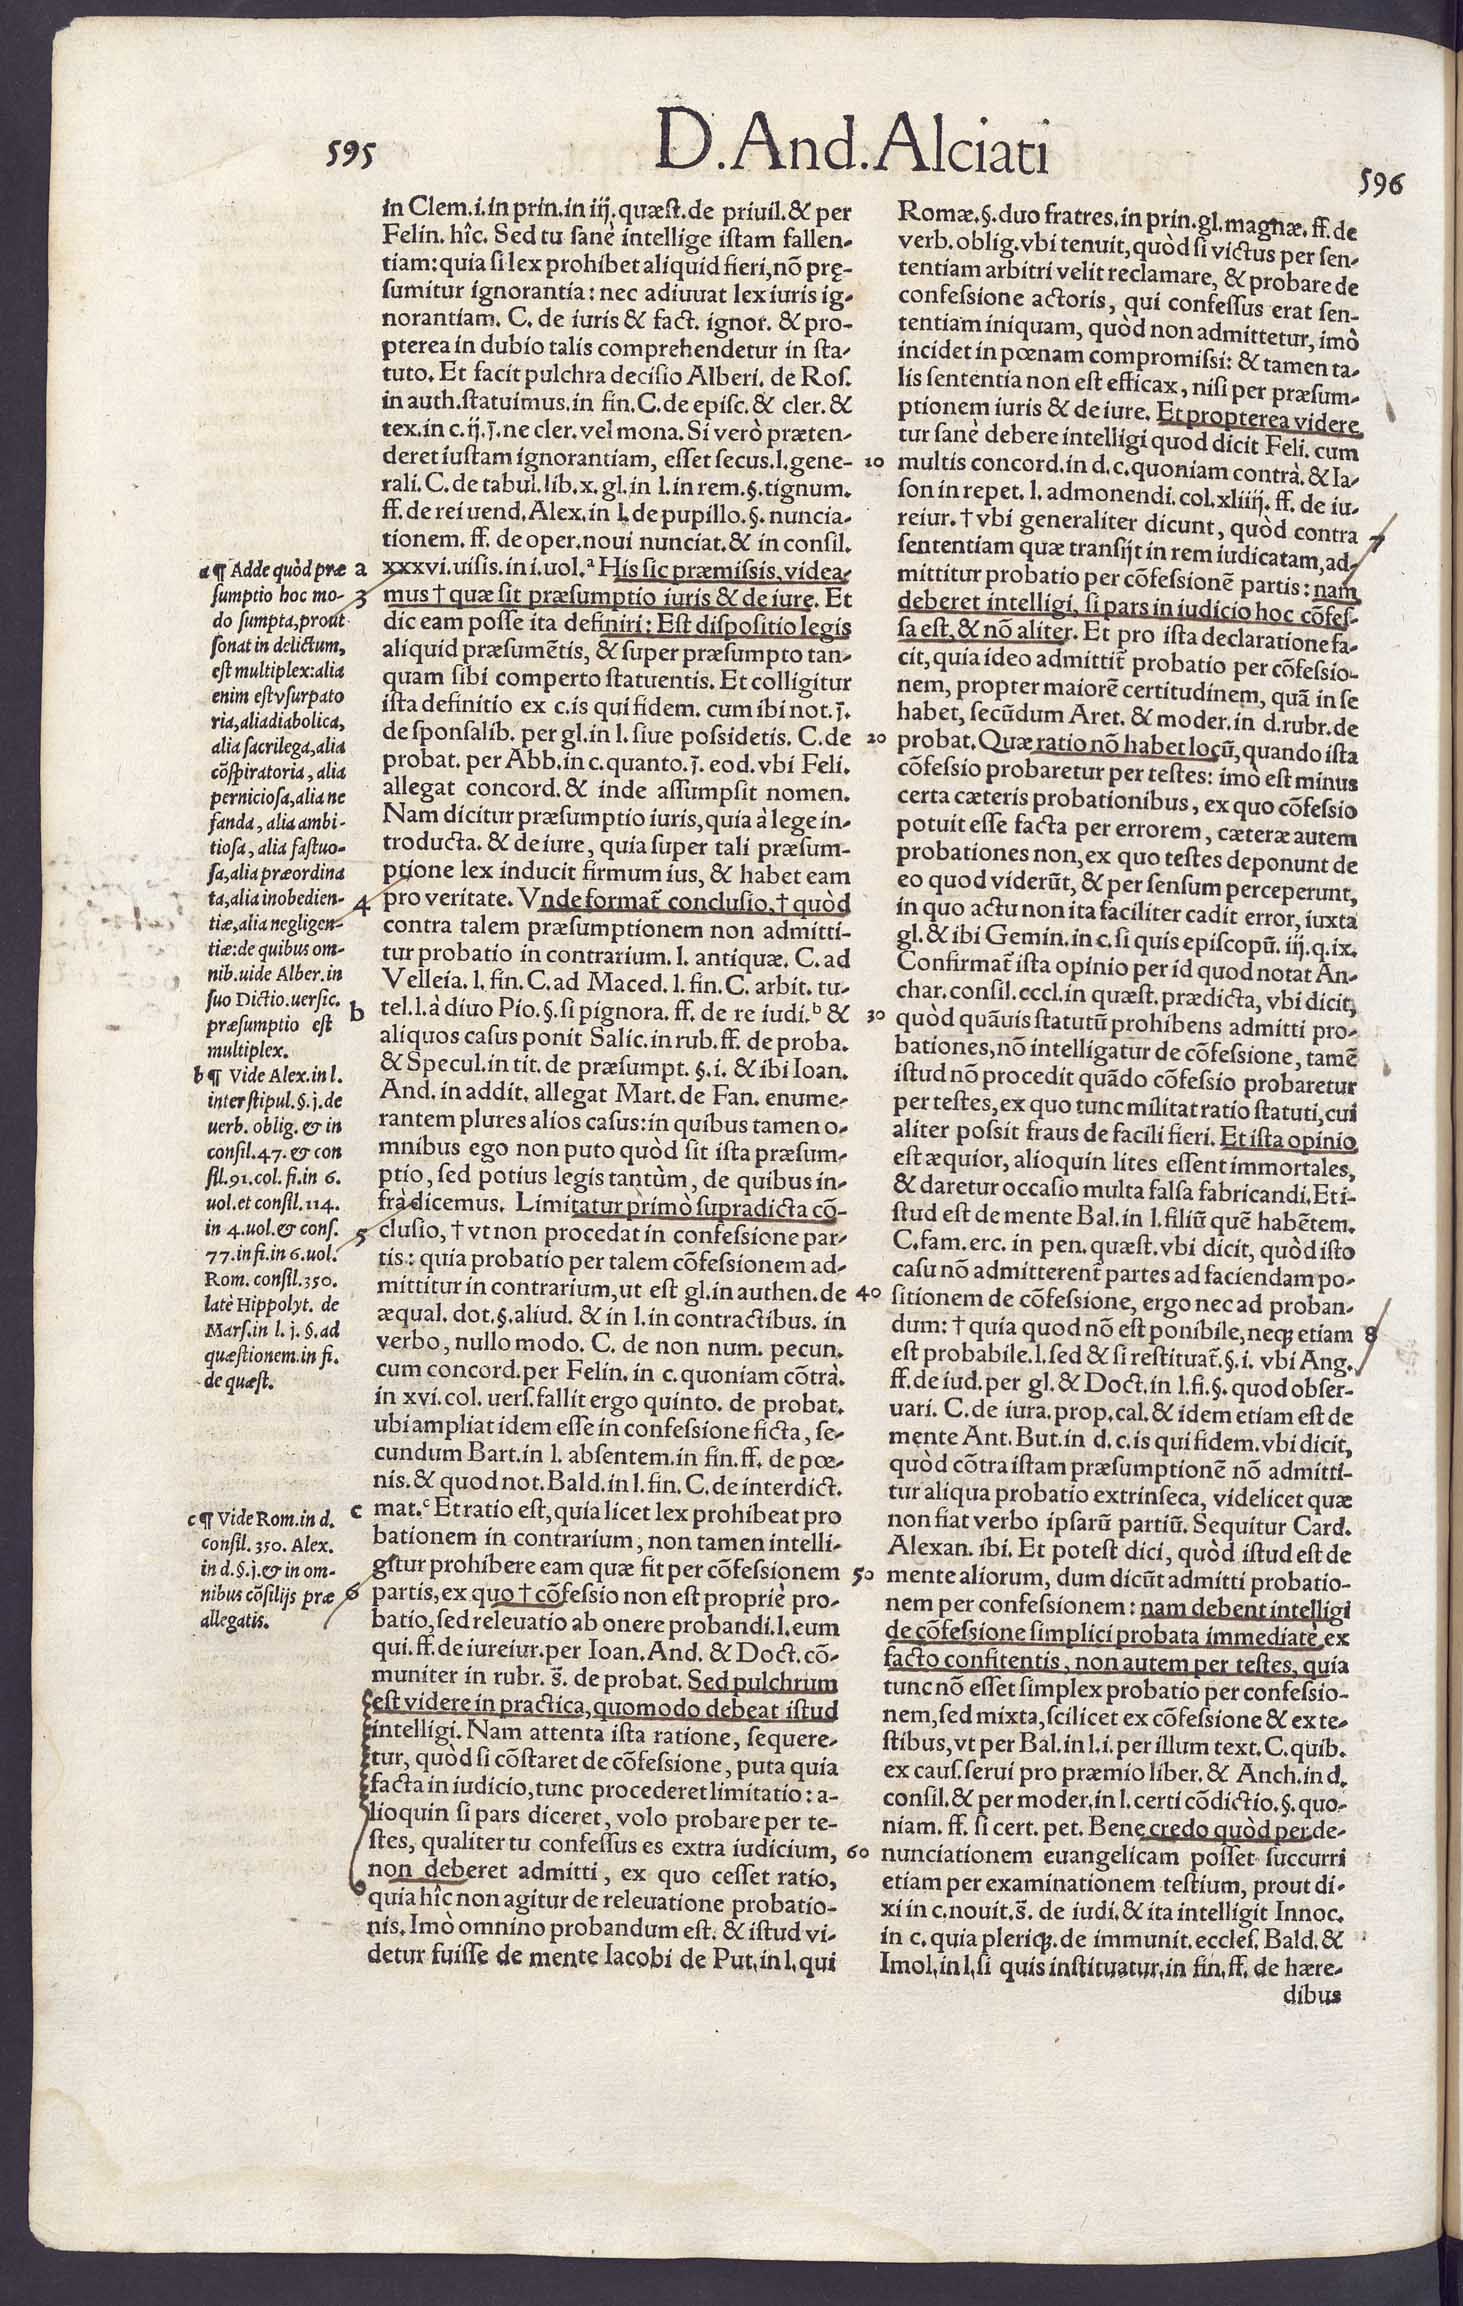 595
D. And. Alciati
596
in Clem.i.in prin.in iij.quæst.de priuil.& per
Felin. hîc. Sed tu sanè intellige istam fallen-
tiam: quia si lex prohibet aliquid fieri, nõ prę-
sumitur ignorantia: nec adiuuat lex iuris ig-
norantiam. C. de iuris & fact. ignor. & pro-
pterea in dubio talis comprehendetur in sta-
tuto. Et facit pulchra decisio Alberi. de Ros.
in auth.statuimus.in fin.C.de episc.& cler.&
tex.in c.ij.j̄.ne cler.vel mona.Si verò præten-
deret iustam ignorantiam, esset secus.l.gene-
rali. C. de tabul.lib.x.gl.in l.in rem.§.tignum.
ff.de rei uend.Alex.in l.de pupillo.§.nuncia-
tionem. ff. de oper.noui nunciat.& in consil.
xxxvi.uisis.in i.uol.ᵃ His sic præmissis, videa-
mus † quæ sit præsumptio iuris & de iure. Et
dic eam posse ita definiri: Est dispositio legis
aliquid præsumẽtis, & super præsumpto tan-
quam sibi comperto statuentis. Et colligitur
ista definitio ex c.is qui fidem. cum ibi not.j̄.
de sponsalib. per gl.in l.siue possidetis. C.de
probat. per Abb.in c.quanto.j̄.eod.vbi Feli.
allegat concord.& inde assumpsit nomen.
Nam dicitur præsumptio iuris, quia à lege in-
troducta. & de iure, quia super tali præsum-
ptione lex inducit firmum ius, & habet eam
pro veritate. Vnde format̃ conclusio, † quòd
contra talem præsumptionem non admitti-
tur probatio in contrarium.l. antiquæ. C.ad
Velleia.l.fin.C.ad Maced.l.fin.C. arbit. tu-
tel.l.à diuo Pio.§.si pignora. ff. de re iudi.ᵇ &
aliquos casus ponit Salic.in rub.ff.de proba.
& Specul.in tit.de præsumpt.§.i.& ibi Ioan.
And. in addit. allegat Mart. de Fan. enume-
rantem plures alios casus: in quibus tamen o-
mnibus ego non puto quòd sit ista præsum-
ptio, sed potius legis tantùm, de quibus in-
frà dicemus. Limitatur primò supradicta cõ-
clusio, † vt non procedat in confessione par-
tis: quia probatio per talem cõfessionem ad-
mittitur in contrarium, ut est gl.in authen.de
æqual. dot.§.aliud. & in l.in contractibus. in
verbo, nullo modo. C. de non num. pecun.
cum concord.per Felin. in c.quoniam cõtrà.
in xvi.col.uers.fallit ergo quinto. de probat.
ubi ampliat idem esse in confessione ficta, se-
cundum Bart.in l. absentem.in fin.ff. de pœ-
nis.& quod not.Bald.in l.fin. C.de interdict.
mat.ᶜ Et ratio est, quia licet lex prohibeat pro
bationem in contrarium, non tamen intelli-
gitur prohibere eam quæ fit per cõfessionem
partis, ex quo † cõfessio non est propriè pro-
batio, sed releuatio ab onere probandi.l.eum
qui.ff.de iureiur.per Ioan.And. & Doct.cõ-
muniter in rubr. s̃. de probat. Sed pulchrum
est videre in practica, quomodo debeat istud
intelligi. Nam attenta ista ratione, sequere-
tur, quòd si cõstaret de cõfessione, puta quia
facta in iudicio, tunc procederet limitatio: a-
lioquin si pars diceret, volo probare per te-
stes, qualiter tu confessus es extra iudicium,
non deberet admitti, ex quo cesset ratio,
quia hîc non agitur de releuatione probatio-
nis. Imò omnino probandum est. & istud vi-
detur fuisse de mente Iacobi de Put.in l.qui
a ¶ Adde quòd præ
sumptio hoc mo-
do sumpta, prout
sonat in delictum,
est multiplex: alia
enim est vsurpato
ria, alia diabolica,
alia sacrilega, alia
cõspiratoria, alia
perniciosa, alia ne
fanda, alia ambi-
tiosa, alia fastuo-
sa, alia præordina
ta, alia inobedien-
tiæ, alia negligen-
tiæ: de quibus om-
nib.uide Alber.in
suo Dictio.uersic.
præsumptio est
multiplex.
b ¶ Vide Alex.in l.
inter stipul.§.j.de
uerb. oblig. & in
consil.47. & con
sil.91.col. fi.in 6.
uol.et consil.114.
in 4.uol.& cons.
77.in fi.in 6.uol.
Rom. consil.350.
latè Hippolyt. de
Mars.in l. j. §.ad
quæstionem.in fi.
de quæst.
c ¶ Vide Rom.in d.
consil. 350. Alex.
in d.§.j.& in om-
nibus cõsilijs præ
allegatis.
a
3
4
b
5
c
6
10
20
30
40
50
60
Romæ.§.duo fratres.in prin.gl.magnæ.ff.de
verb.oblig.vbi tenuit, quòd si victus per sen-
tentiam arbitri velit reclamare, & probare de
confessione actoris, qui confessus erat sen-
tentiam iniquam, quòd non admittetur, imò
incidet in pœnam compromissi: & tamen ta-
lis sententia non est efficax, nisi per præsum-
ptionem iuris & de iure. Et propterea videre
tur sanè debere intelligi quod dicit Feli. cum
multis concord.in d.c.quoniam contrà.& Ia-
son in repet. l. admonendi. col.xliiij. ff. de iu-
reiur. † vbi generaliter dicunt, quòd contra
sententiam quæ transijt in rem iudicatam, ad-
mittitur probatio per cõfessionẽ partis: nam
deberet intelligi, si pars in iudicio hoc cõfes-
sa est, & nõ aliter. Et pro ista declaratione fa-
cit, quia ideo admittit̃ probatio per cõfessio-
nem, propter maiorẽ certitudinem, quã in se
habet, secũdum Aret. & moder.in d.rubr.de
probat. Quæ ratio nõ habet locũ, quando ista
cõfessio probaretur per testes: imò est minus
certa cæteris probationibus, ex quo cõfessio
potuit esse facta per errorem, cæteræ autem
probationes non, ex quo testes deponunt de
eo quod viderũt, & per sensum perceperunt,
in quo actu non ita faciliter cadit error, iuxta
gl.& ibi Gemin.in c.si quis episcopũ.iij.q.ix.
Confirmat̃ ista opinio per id quod notat An-
char.consil.eccl.in quæst. prædicta, vbi dicit,
quòd quãuis statutũ prohibens admitti pro-
bationes, nõ intelligatur de cõfessione, tamẽ
istud nõ procedit quãdo cõfessio probaretur
per testes, ex quo tunc militat ratio statuti, cui
aliter possit fraus de facili fieri. Et ista opinio
est æquior, alioquin lites essent immortales,
& daretur occasio multa falsa fabricandi.Et i-
stud est de mente Bal.in l.filiũ quẽ habẽtem.
C.fam.erc. in pen.quæst.vbi dicit, quòd isto
casu nõ admitterent̃ partes ad faciendam po-
sitionem de cõfessione, ergo nec ad proban-
dum: † quia quod nõ est ponibile, neq; etiam
est probabile.l.sed & si restituat̃.§.i. vbi Ang.
ff.de iud.per gl.& Doct.in l.fi.§.quod obser-
uari. C.de iura.prop.cal.& idem etiam est de
mente Ant.But.in d.c.is qui fidem.vbi dicit,
quòd cõtra istam præsumptionẽ nõ admitti-
tur aliqua probatio extrinseca, videlicet quæ
non fiat verbo ipsarũ partiũ. Sequitur Card.
Alexan. ibi. Et potest dici, quòd istud est de
mente aliorum, dum dicũt admitti probatio-
nem per confessionem: nam debent intelligi
de cõfessione simplici probata immediatè ex
facto confitentis, non autem per testes, quia
tunc nõ esset simplex probatio per confessio-
nem, sed mixta, scilicet ex cõfessione & ex te-
stibus, vt per Bal.in l.i.per illum text.C.quib.
ex caus.serui pro præmio liber. & Anch.in d.
consil.& per moder.in l.certi cõdictio.§.quo-
niam. ff. si cert. pet. Bene credo quòd per de-
nunciationem euangelicam posset succurri
etiam per examinationem testium, prout di-
xi in c.nouit.s̃. de iudi.& ita intelligit Innoc.
in c.quia pleriq;.de immunit.eccles. Bald.&
Imol.in l.si quis instituatur.in fin.ff.de hære-
dibus
7
8